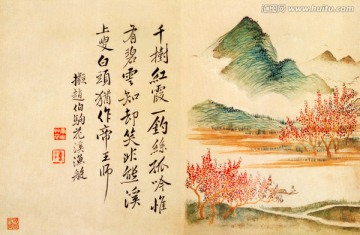 千樹紅霞一釣絲孤吟惟
有碧雲知却笑非熊溪
上叟白頭猶作帝王師
擬趙伯駒花溪漁艇
www.lfutu.com